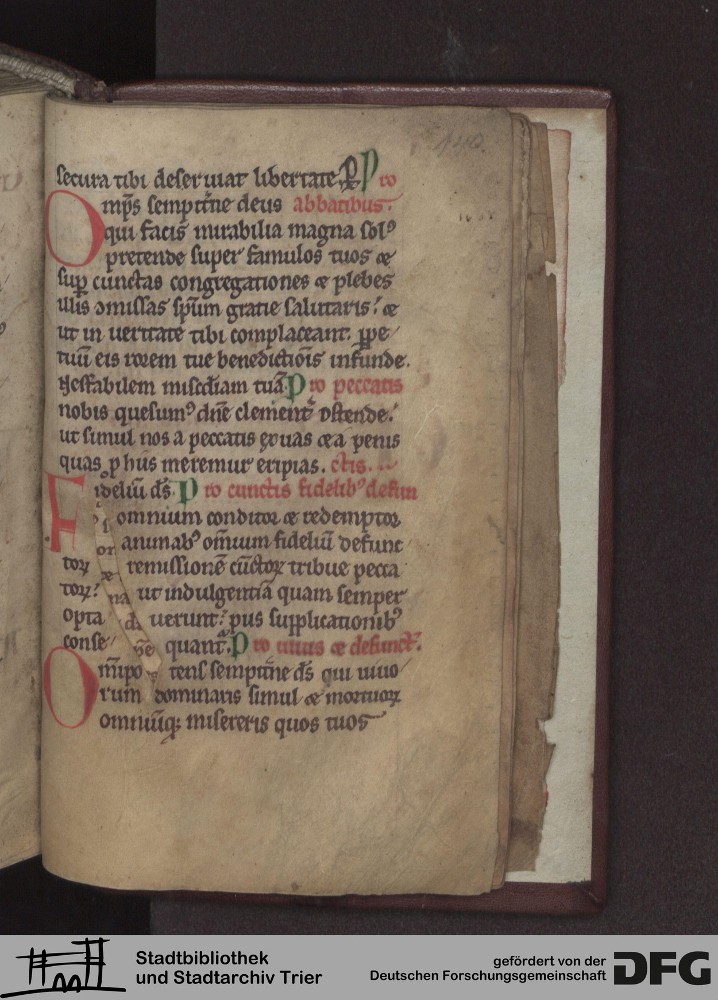 140.
secura tibi deseruiat libertate. P Pro
Omp̄s sempit̄ne deus abbatibus.
qui facis mirabilia magna solꝰ
pretende super famulos tuos ⁊
sup̄ cunctas congregationes ⁊ plebes
illis ↄmissas sp̄um gratie salutaris: ⁊
ut in ueritate tibi complaceant. ꝑpe
tuū eis rorem tue benedictiōis infunde.
Ineffabilem misc̄diam tuā. Pro peccatis
nobis quesumꝰ dn̄e clement̄ ostende:
ut simul nos a peccatis exuas ⁊ a penis
quas ꝓ hiis meremur eripias. ctis.
Fideliū ds̄. Pro cunctis fidelibꝰ defun
omnium conditor ⁊ redemptor
animabꝰ om̄ium fideliū defunc
toꝝ remissionē cūctoꝝ tribue pecca
toꝝ: ut indulgentiā quam semper
opta uerunt: piis supplicationibꝰ
conse quant̄. Pro uiuis ⁊ defunct̄.
Om̄ipo tens sempit̄ne ds̄ qui uiuo
rum dominaris simul ⁊ mortuoꝝ
omniūq; misereris quos tuos
Stadtbibliothek
und Stadtarchiv Trier
gefördert von der
Deutschen Forschungsgemeinschaft DFG